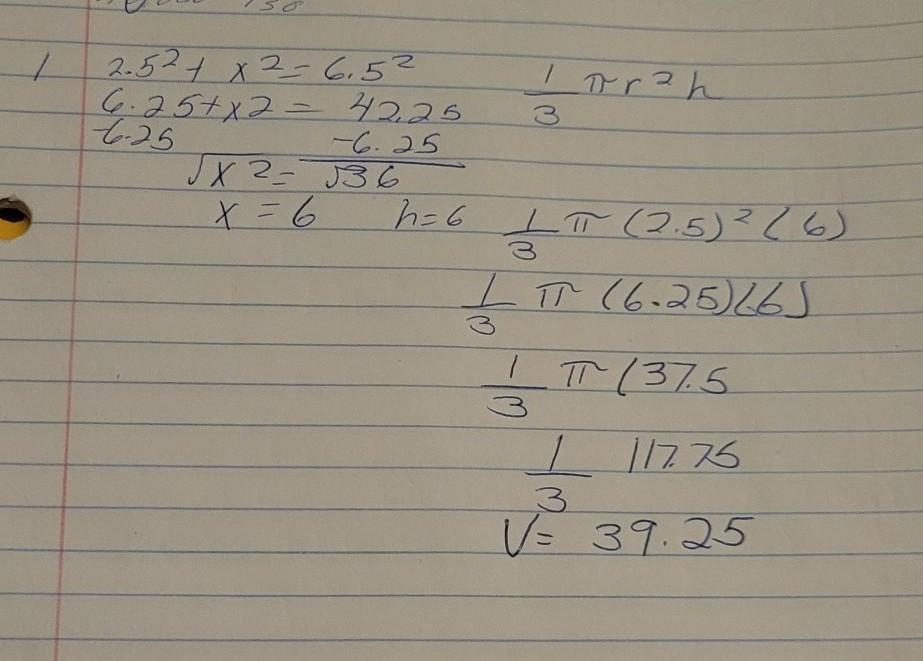 1 2.5²+ x²= 6.5²
6.25+x2 = 42.25
-6.25 -6.25
√x²= √36
x = 6 h=6
1/3 πr²h
1/3 π (2.5)² (6)
1/3 π (6.25)(6)
1/3 π (37.5
1/3 117.75
V= 39.25